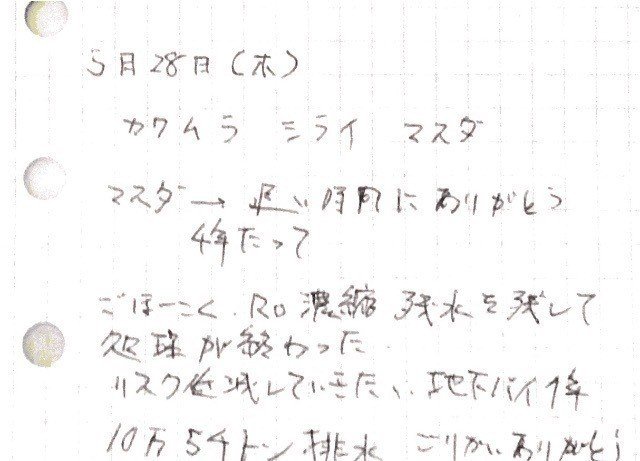 5月28日(木)
カワムラ ミライ マスダ
マスダ → 遅い時間にありがとう
4年たって
ごほーこく RO濃縮 残水を残して
処理が終わった
リスク低減していきたい 地下バイパス
10万54トン排水 ごりかいありがとう